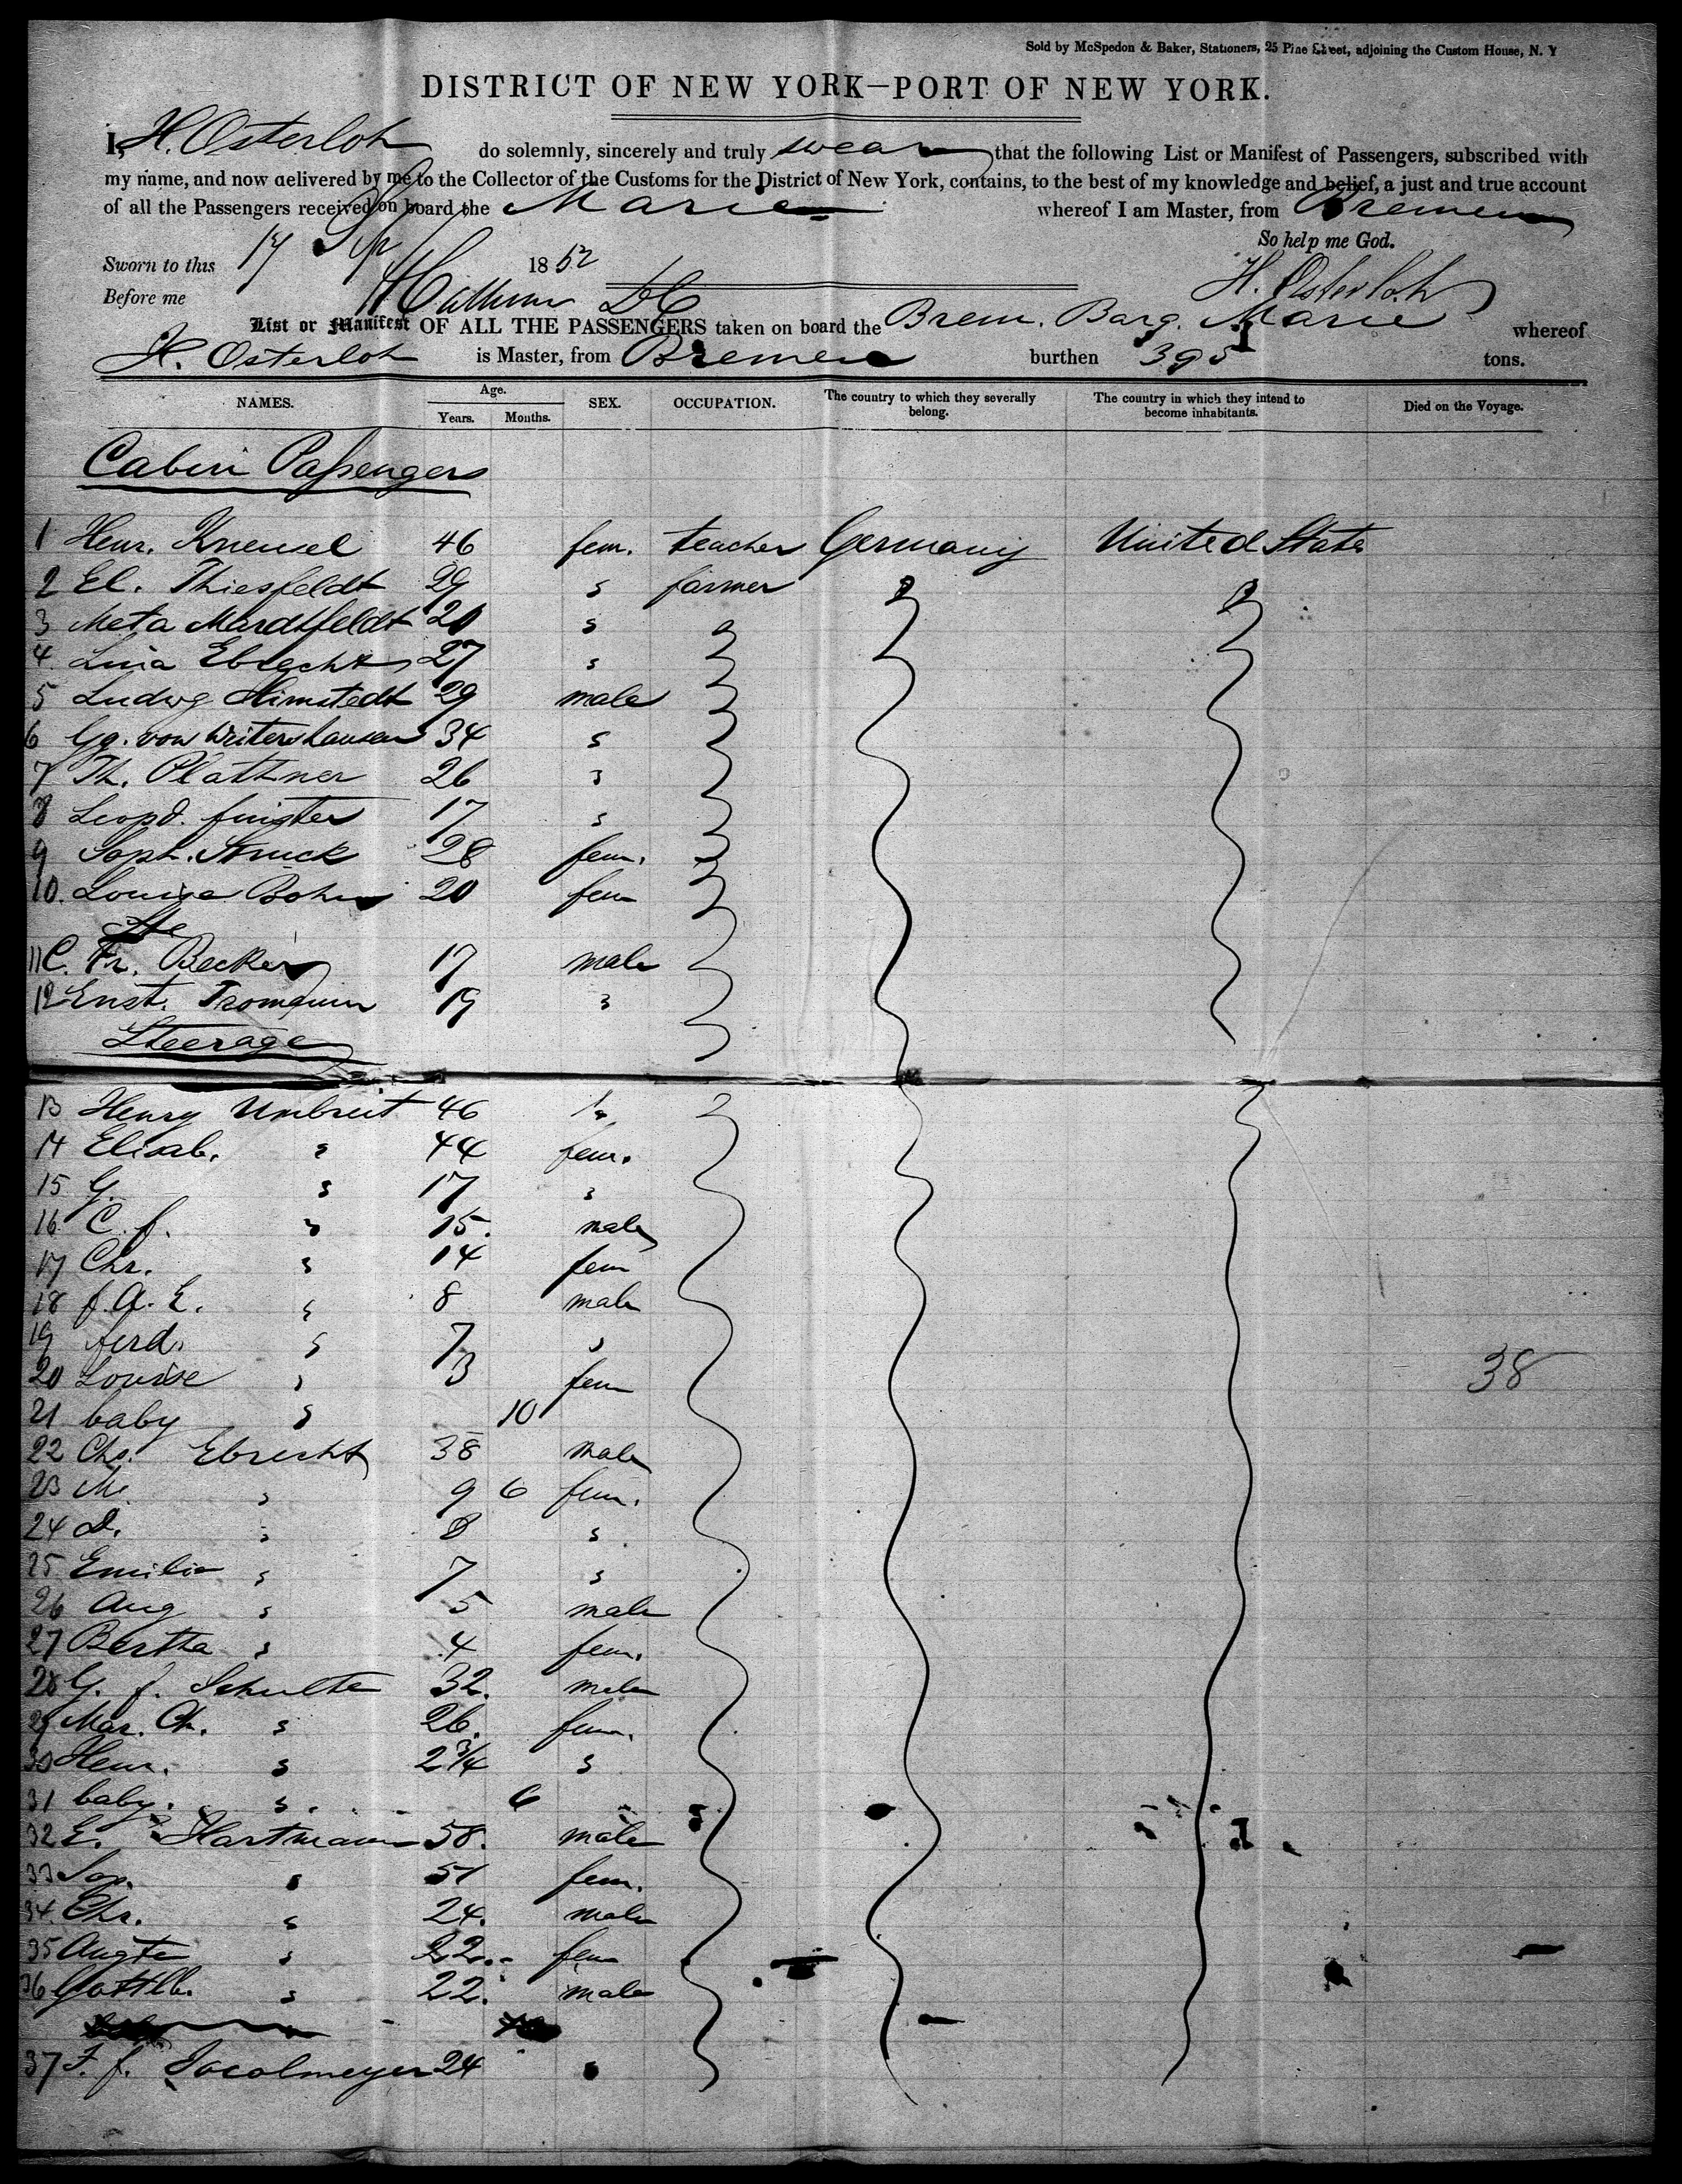 Sold by McSpedon & Baker, Stationers, 25 Pine Street, adjoining the Custom House, N. Y
DISTRICT OF NEW YORK—PORT OF NEW YORK.
I, H. Osterloh do solemnly, sincerely and truly swear that the following List or Manifest of Passengers, subscribed with
my name, and now delivered by me to the Collector of the Customs for the District of New York, contains, to the best of my knowledge and belief, a just and true account
of all the Passengers received on board the Marie whereof I am Master, from Bremen
So help me God.
Sworn to this 17 Sep 1852
Before me H. Osterloh
List or Manifest OF ALL THE PASSENGERS taken on board the Brem. Barq. Marie whereof
H. Osterloh is Master, from Bremen burthen 395 tons.
NAMES. Age. Years. Months. SEX. OCCUPATION. The country to which they severally belong. The country in which they intend to become inhabitants. Died on the Voyage.
Cabin Passengers
1 Henr. Kneusel 46 fem. teacher Germany United States
2 El. Thiesfeldt 29 s farmer
3 Meta Mardsfeldt 20 s
4 Lina Ebrecht 27 s
5 Ludwg Himstedt 29 male
6 Gg. von Weitershausen 34 s
7 Th. Plattner 26 s
8 Leopd. 17 s
9 Soph. Struck 28 fem.
10. Louise Bohn 20 fem
Ste
11 C. Fr. Becker 17 male
12 Ernst. 19 s
Steerage
13 Henry Umbreit 46
14 Elisab. s 44 fem.
15 G. s 17 s
16 C. f. s 15. male
17 Chr. s 14 fem
18 f. A. E. s 8 male
19 ferd. s 7 s
20 Louise s 3 fem
21 baby s 10
38
22 Chr. Ebrecht 38 male
23 M. s 9 6 fem.
24 D. s 8 s
25 Emilie s 7 s
26 Aug s 5 male
27 Bertha s 4 fem.
28 G. f. Schulte 32. male
29 Mar. Ch. s 26. fem.
30 Henr. s 2 3/4 s
31 baby. s. 6
32 E. Hartmann 58. male
33 Sop. s 51 fem.
34. Chr. s 24. male
35 Augte s 22. fem
36 Gottlb. s 22. male
37 F. f. Jacolmeyer 24 s